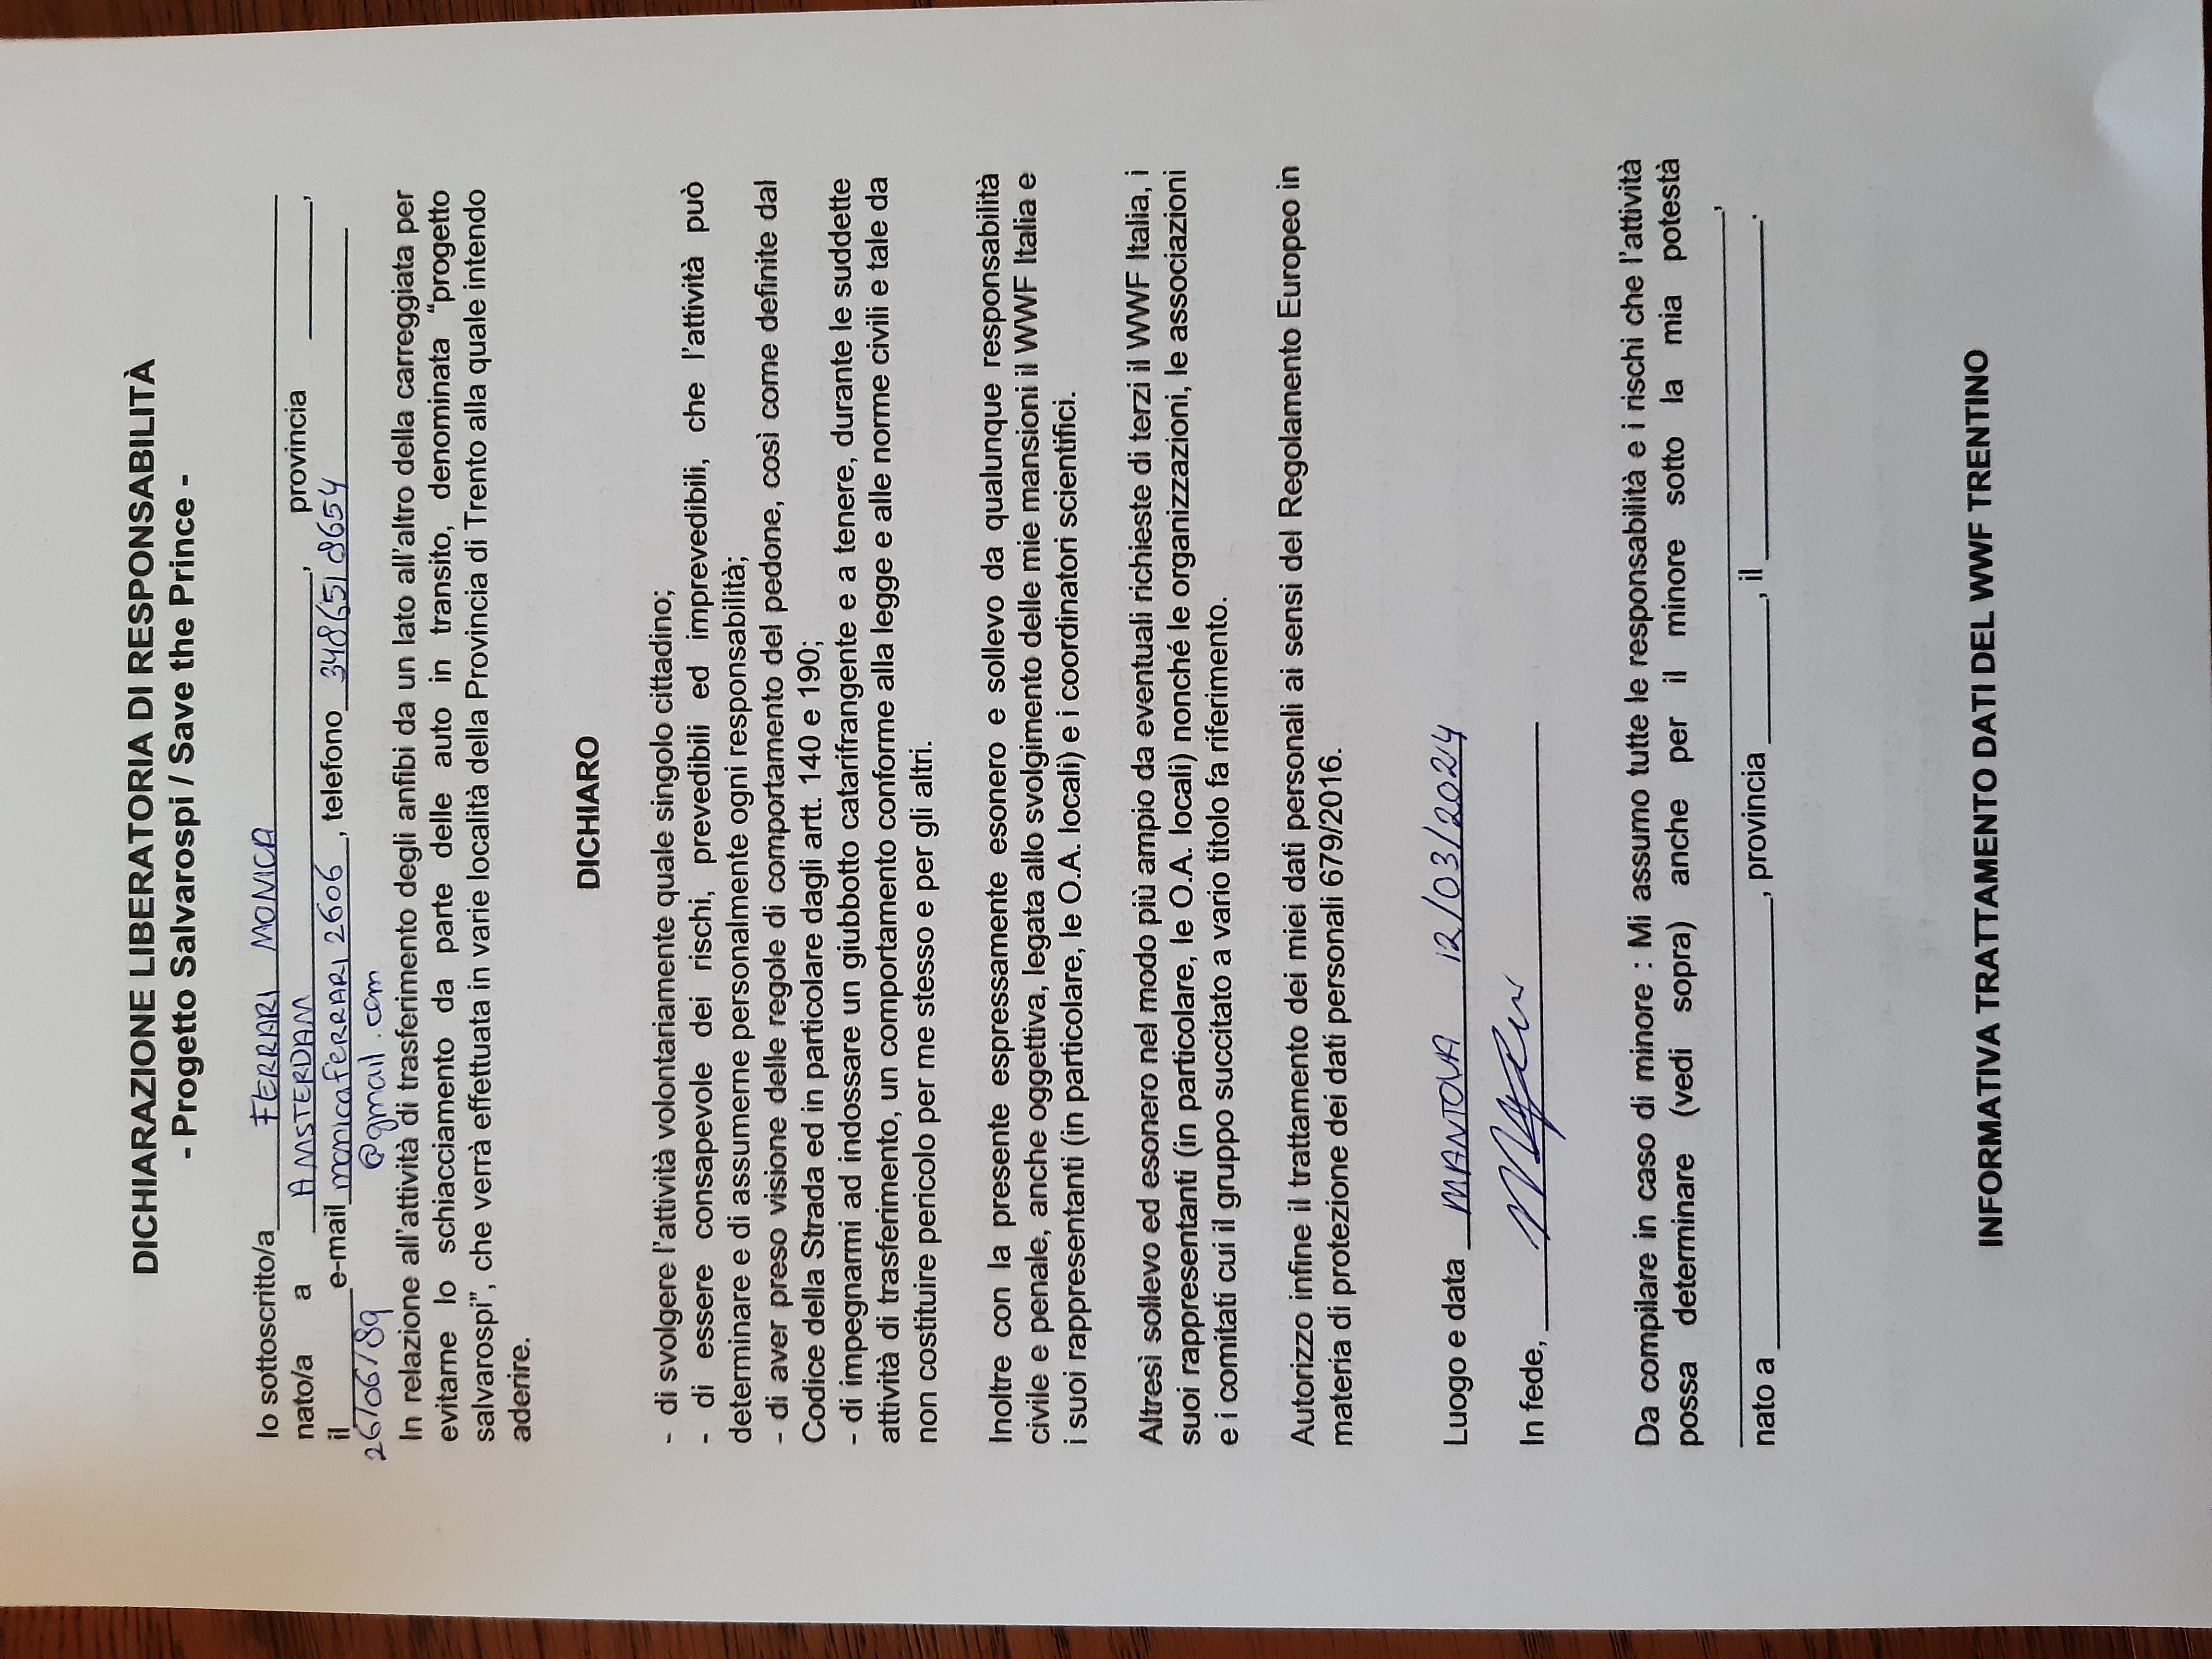 DICHIARAZIONE LIBERATORIA DI RESPONSABILITÀ
- Progetto Salvarospi / Save the Prince -
Io sottoscritto/a FERRARI MONICA
nato/a a AMSTERDAM, provincia ________,
il________ e-mail monicaFERRARI2606, telefono 3486518654
26/06/89 @gmail.com
In relazione all'attività di trasferimento degli anfibi da un lato all'altro della carreggiata per
evitarne lo schiacciamento da parte delle auto in transito, denominata "progetto
salvarospi", che verrà effettuata in varie località della Provincia di Trento alla quale intendo
aderire.
DICHIARO
- di svolgere l'attività volontariamente quale singolo cittadino;
- di essere consapevole dei rischi, prevedibili ed imprevedibili, che l'attività può
determinare e di assumerne personalmente ogni responsabilità;
- di aver preso visione delle regole di comportamento del pedone, così come definite dal
Codice della Strada ed in particolare dagli artt. 140 e 190;
- di impegnarmi ad indossare un giubbotto catarifrangente e a tenere, durante le suddette
attività di trasferimento, un comportamento conforme alla legge e alle norme civili e tale da
non costituire pericolo per me stesso e per gli altri.
Inoltre con la presente espressamente esonero e sollevo da qualunque responsabilità
civile e penale, anche oggettiva, legata allo svolgimento delle mie mansioni il WWF Italia e
i suoi rappresentanti (in particolare, le O.A. locali) e i coordinatori scientifici.
Altresì sollevo ed esonero nel modo più ampio da eventuali richieste di terzi il WWF Italia, i
suoi rappresentanti (in particolare, le O.A. locali) nonché le organizzazioni, le associazioni
e i comitati cui il gruppo succitato a vario titolo fa riferimento.
Autorizzo infine il trattamento dei miei dati personali ai sensi del Regolamento Europeo in
materia di protezione dei dati personali 679/2016.
Luogo e data MANTOVA 12/03/2024
In fede,
Da compilare in caso di minore : Mi assumo tutte le responsabilità e i rischi che l'attività
possa determinare (vedi sopra) anche per il minore sotto la mia potestà
________________,
nato a ________________, provincia ________, il ________________.
INFORMATIVA TRATTAMENTO DATI DEL WWF TRENTINO